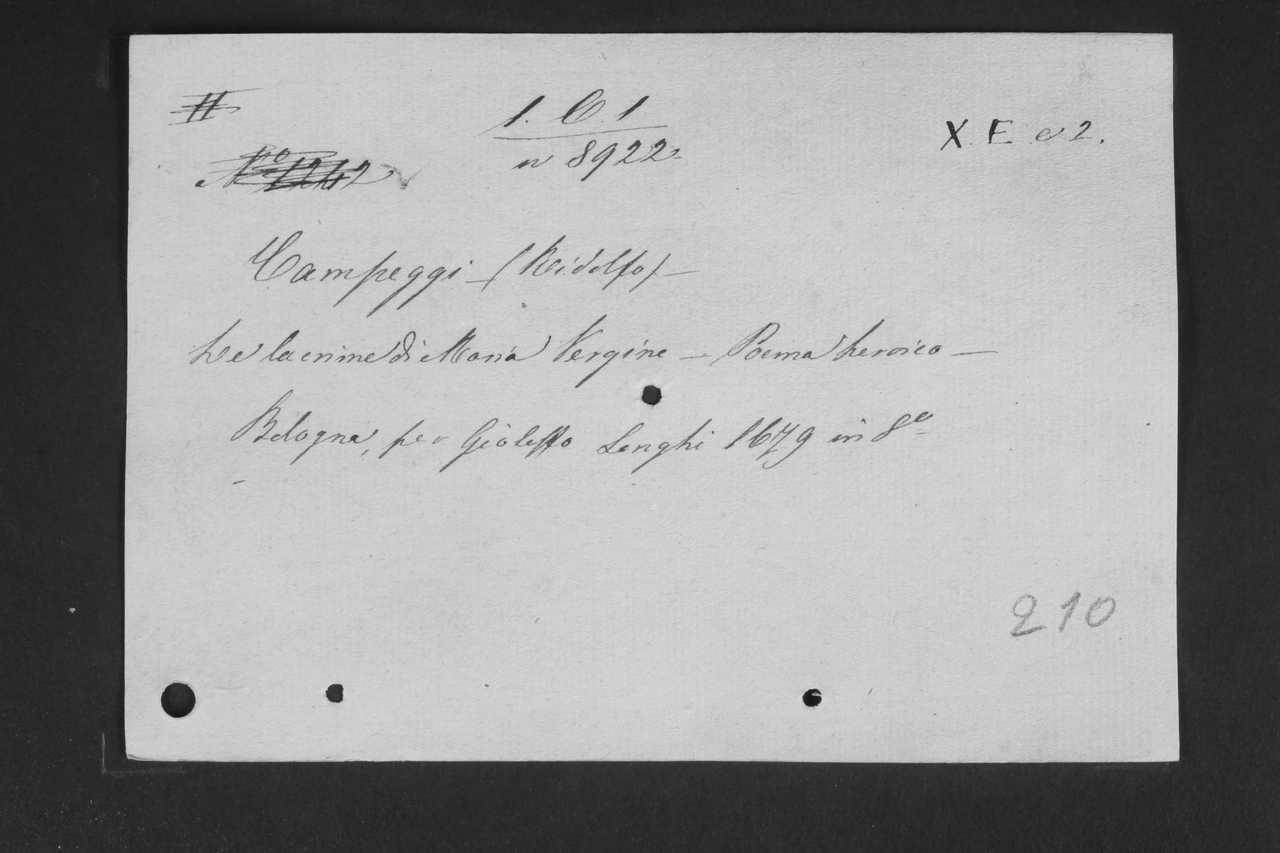 H
1. C. 1
n 8922
X. E. e 2.
No 1242
Campeggi - (Ridolfo) -
Le lacrime di Maria Vergine - Poema heroico -
Bologna, per Gioseffo Longhi 1679 in 8o
210